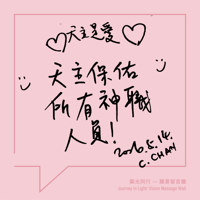 天主是愛
天主保佑
所有神職
人員!
2026.5.14.
C. CHAN
榮光同行 － 願景留言牆
Journey in Light: Vision Message Wall